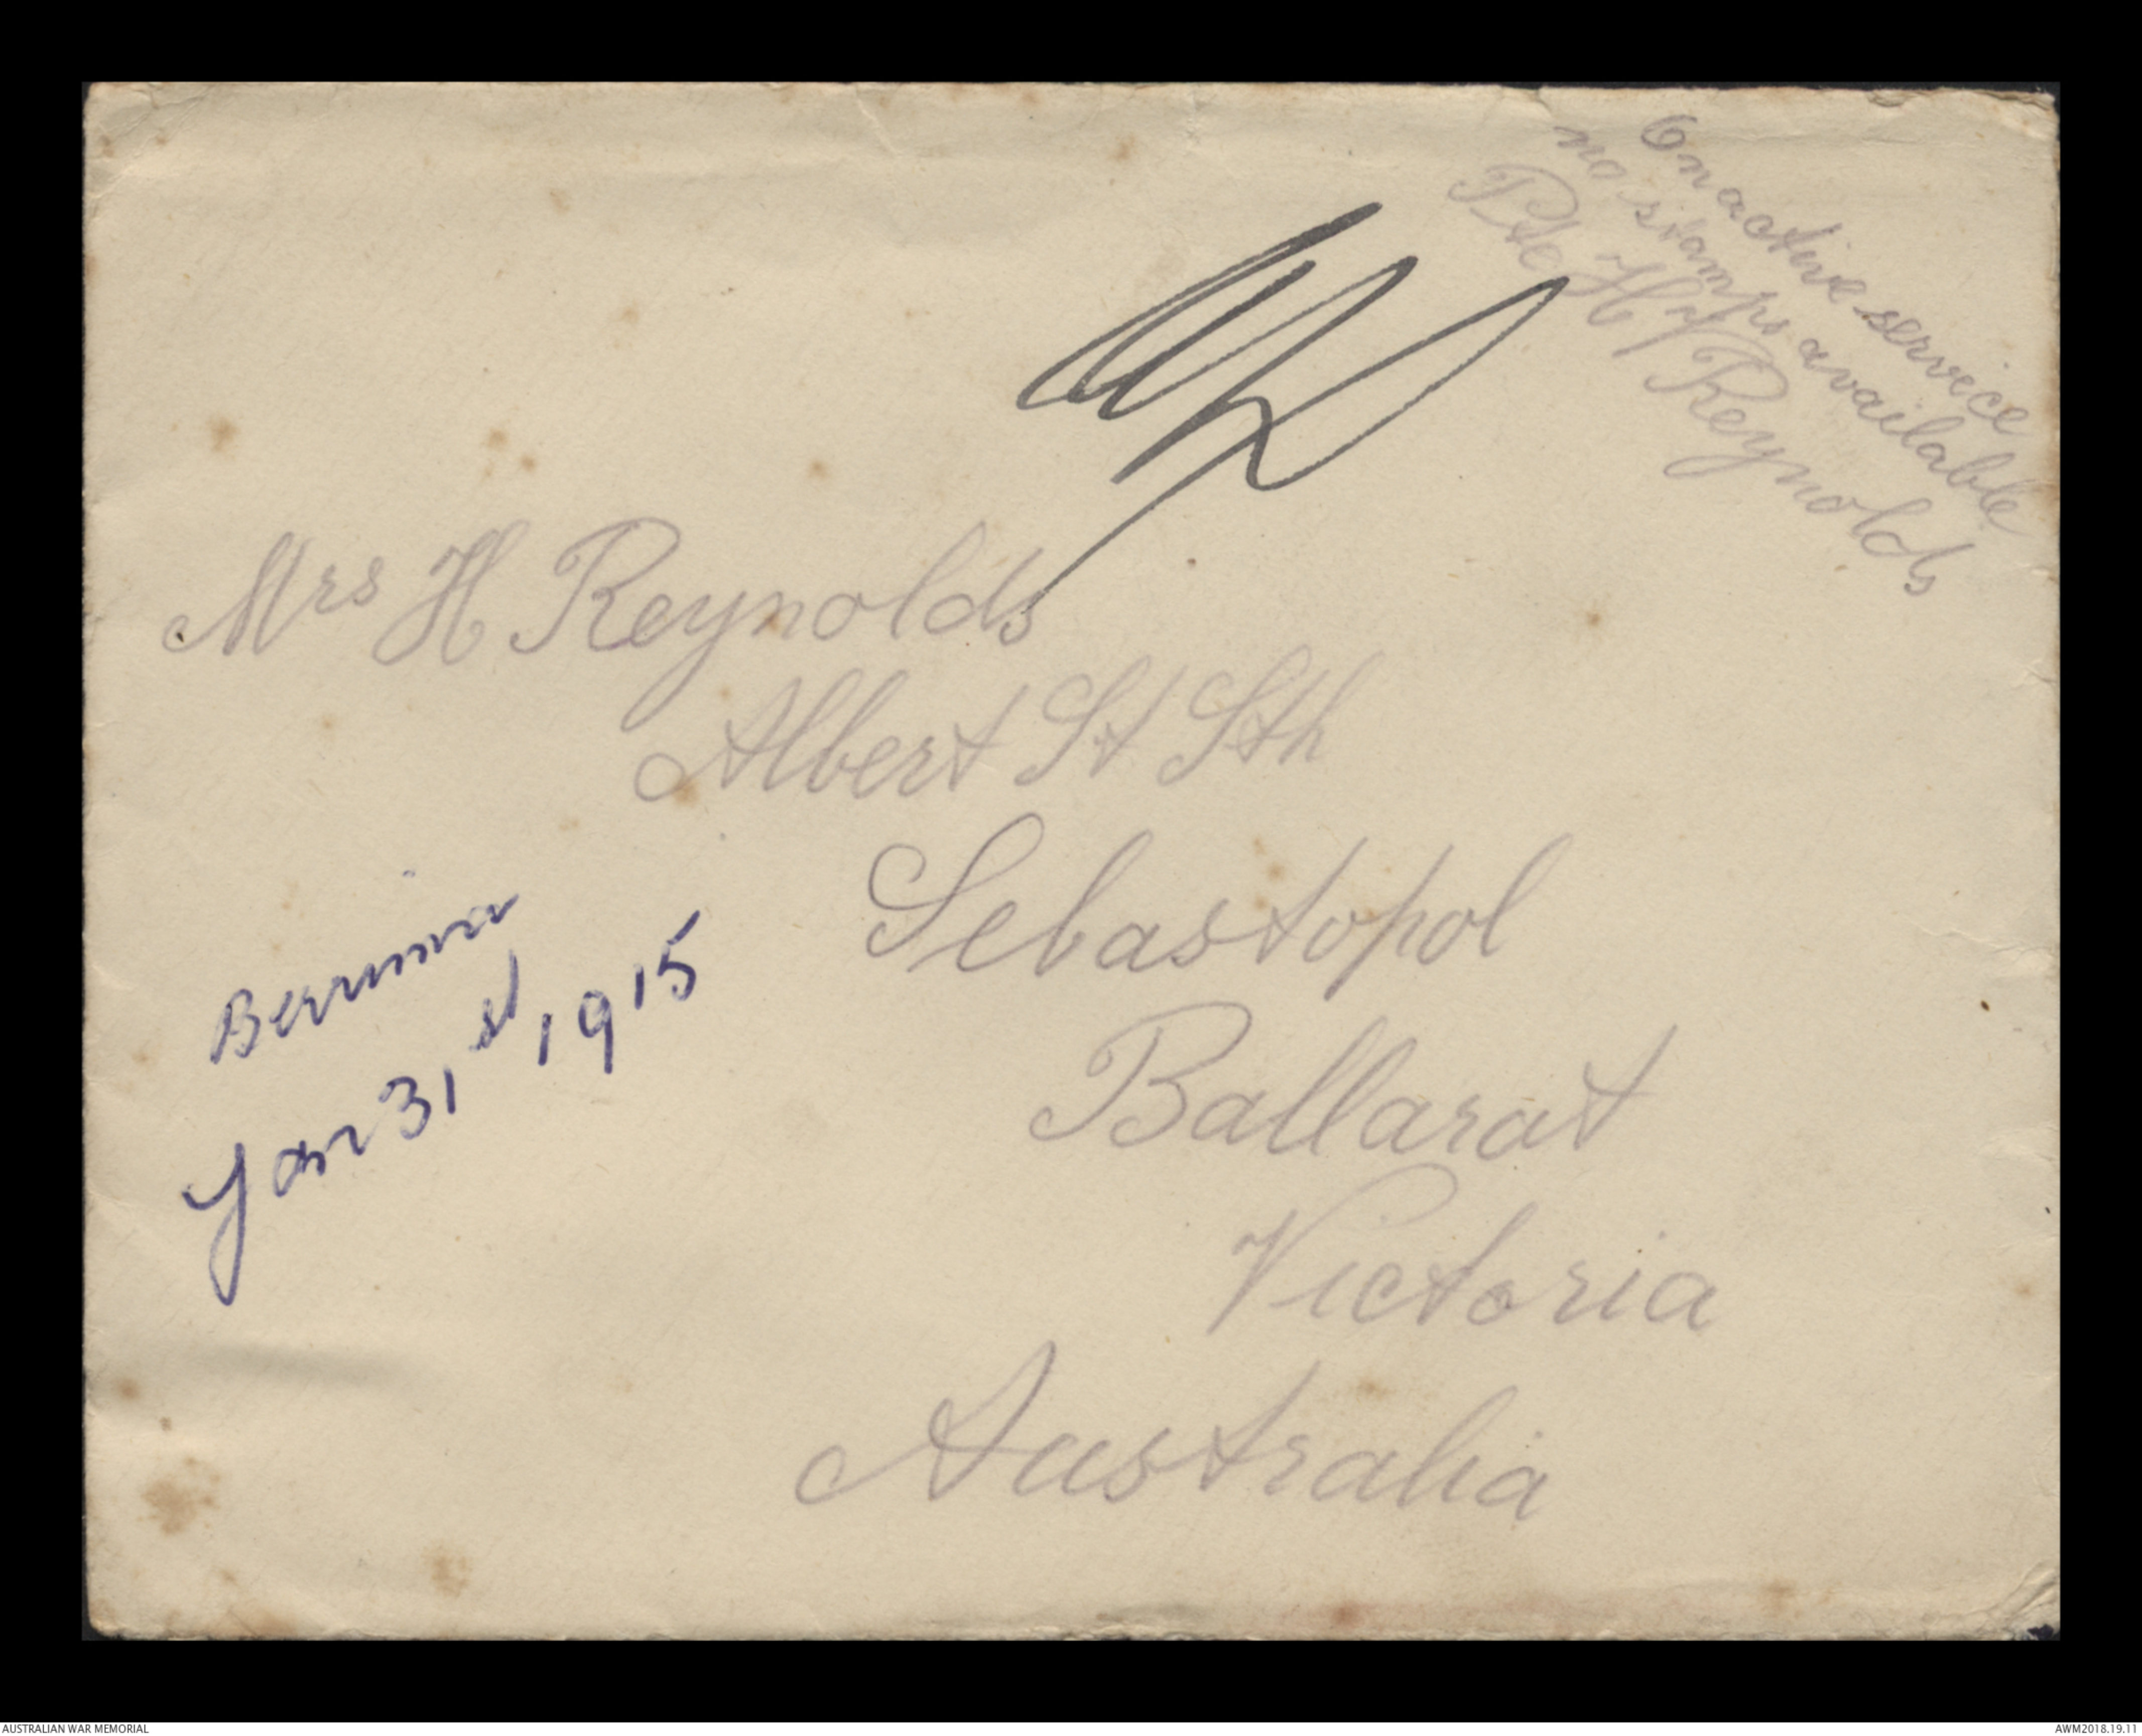 On active service
no stamps available
Pte H Reynolds
Mrs H Reynolds
Albert St Sth
Sebastopol
Ballarat
Victoria
Australia
Berrima
Jan 31st 1915
AUSTRALIAN WAR MEMORIAL
AWM2018.19.11